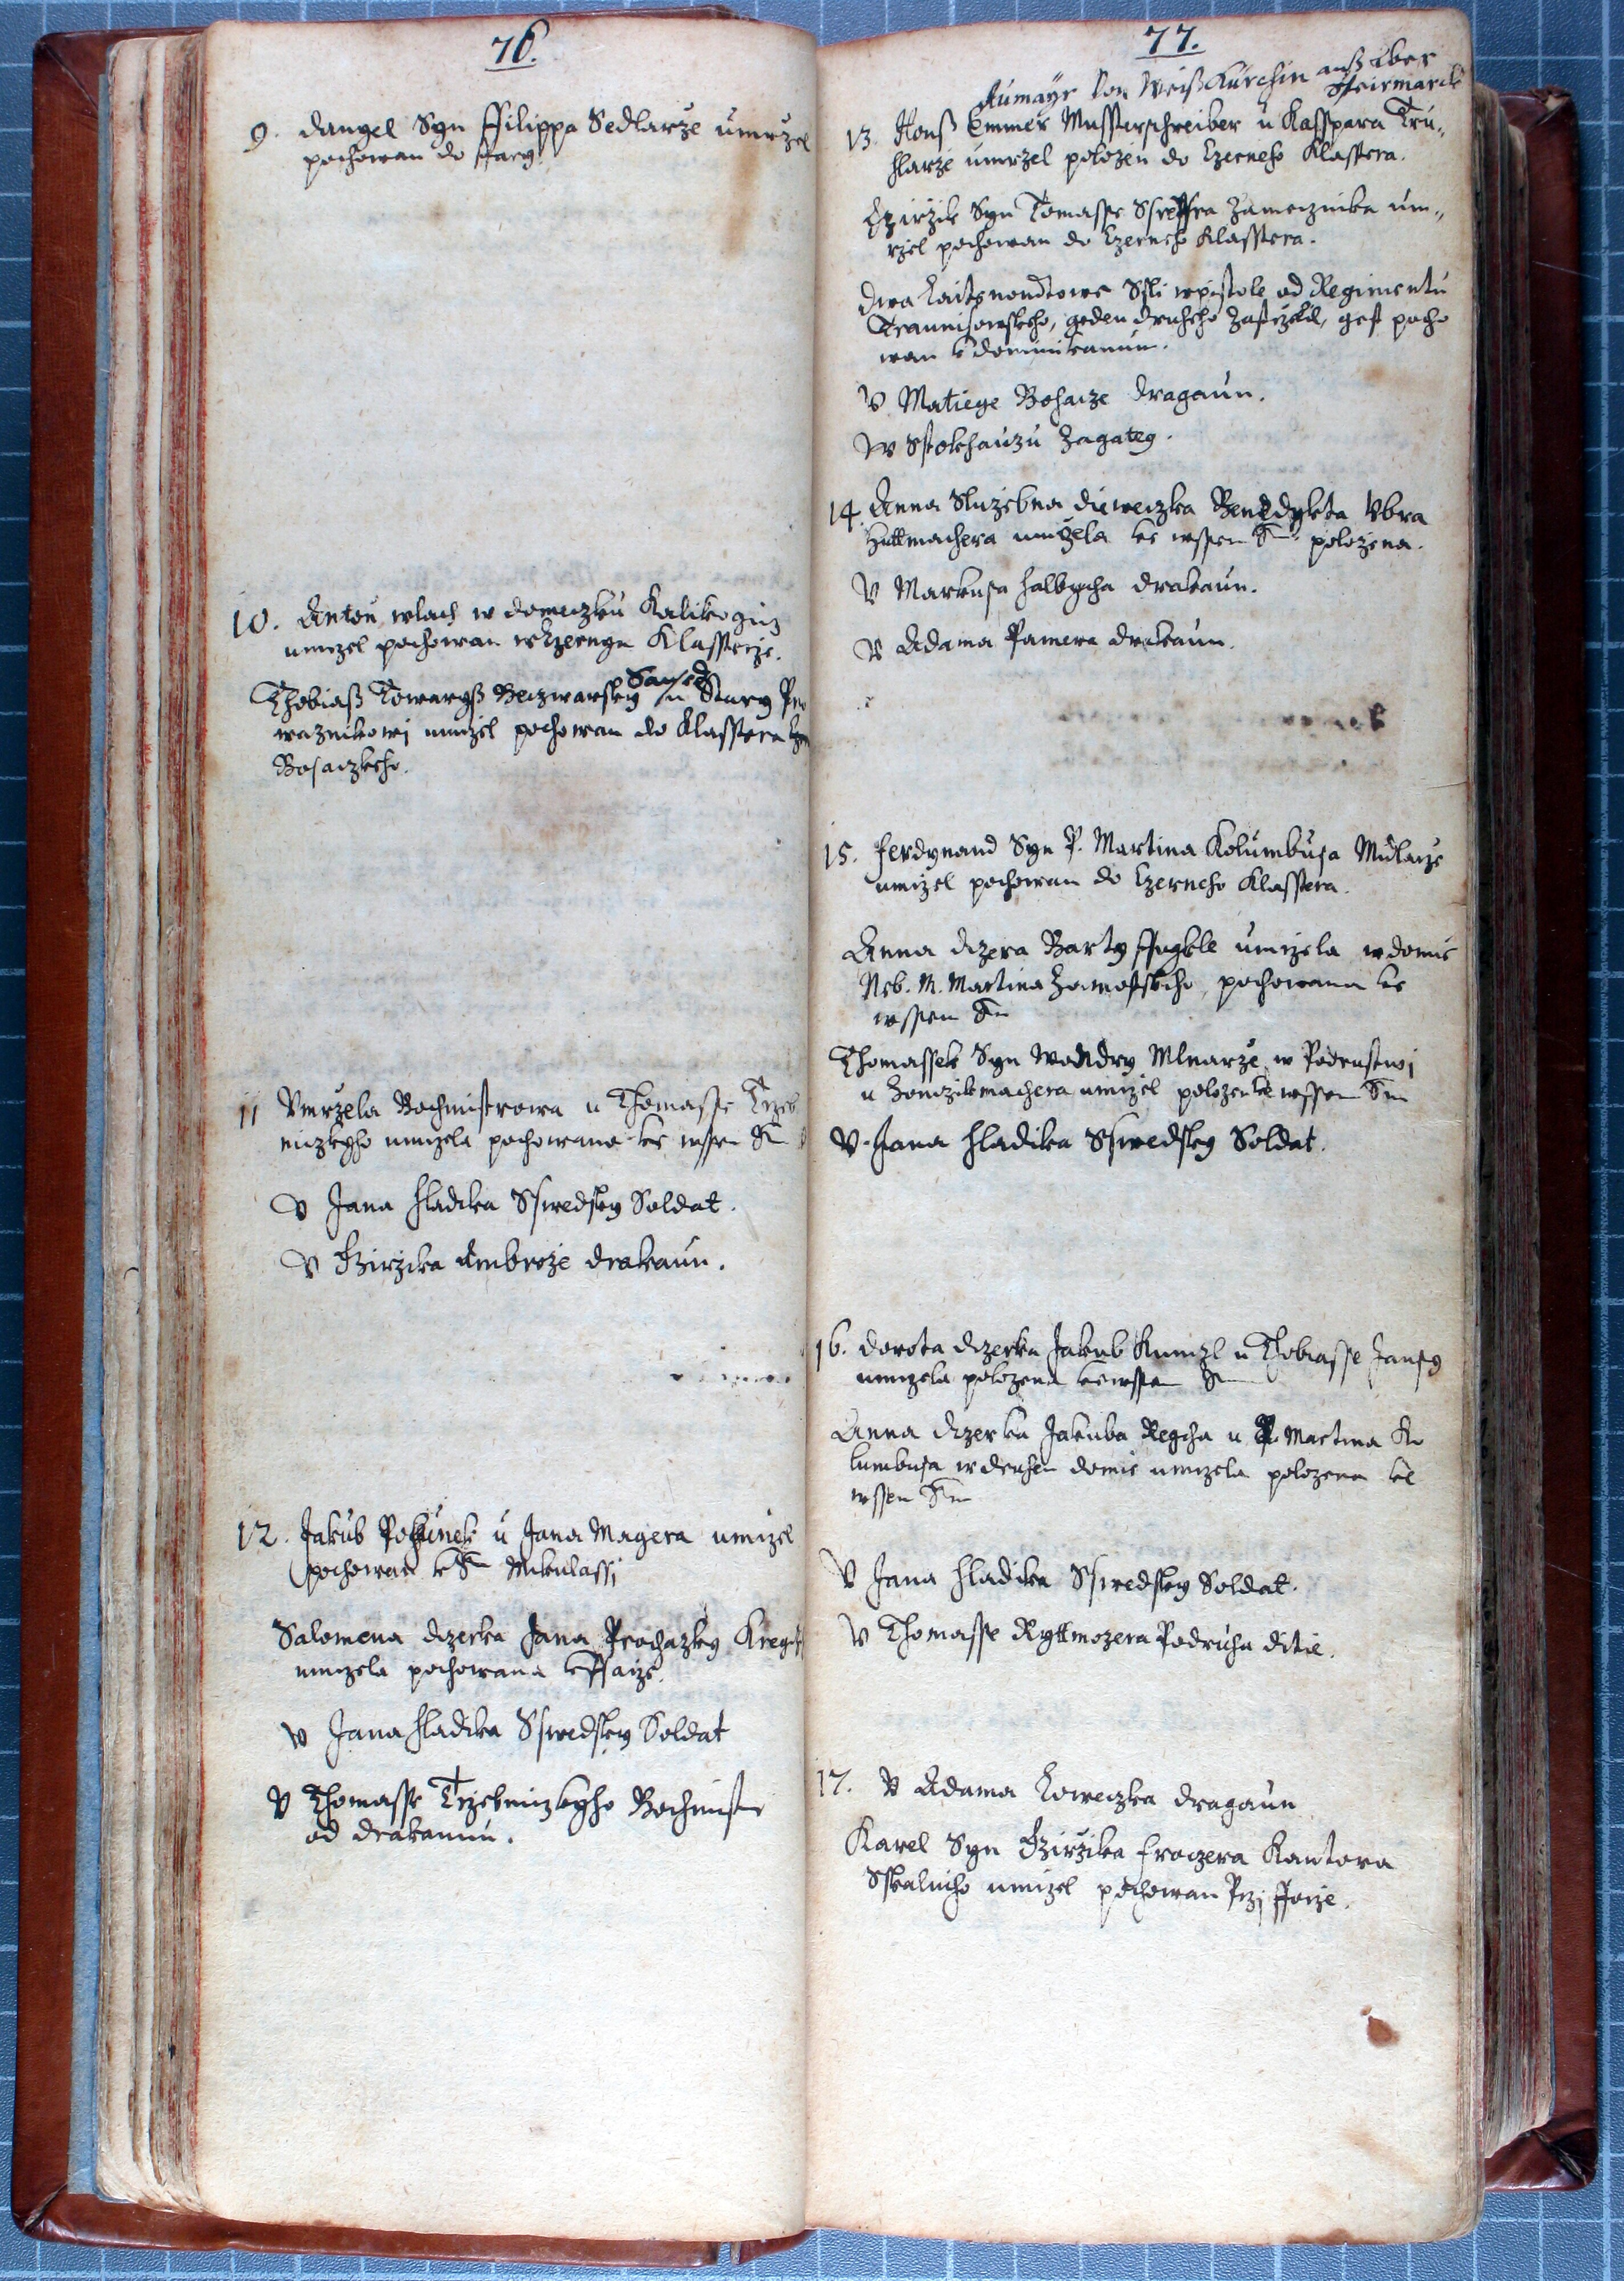 76.
9. Dangel Syn Filippa Sedlarze umrzel
pochowan do ffary.
10. Anton wlach w domeczku Kalikogich
umrzel pochowan w Czernym Klassterze.
Saused
Thobiass Towaryss Beczwarsky u Stary Pro
waznikowi umrzel pochowan do Klasstera
Bosaczkeho.
11 Vmrzela Bochmistrowa u Thomasse Trzeb
niczkyho umrzela pochowana ke wssem S
V Jana Hladika Sswedsky Soldat.
V Girzika Ambroze Drakaun.
12. Jakub u Jana Magera umrzel
pochowan k S Mikulassi
Salomena dczerka Jana Prochazky Kregcz
umrzela pochowana k ffarze.
W Jana Hladika Sswedsky Soldat
V Thomasse Trzebniczkyho Bochmistr
od Drakaunu.
77.
Aumayr von Weisskürchin auss Ober
Steirmarck
13. Hanss Emmer Mussterschreiber u Kasspara Tru„
hlarze umrzel polozen do Czerneho Klasstera.
Girzik Syn Tomasse Zamecznika um„
rzel pochowan do Czerneho Klasstera.
Dwa Laitenondtowe Ssli wpistole od Regimentu
geden druheho Zastrzelil, gest pocho
wan k Dominikanum.
V Matiege Bohacze Dragaun.
W Sstokhauzu Zagaty.
14. Anna Sluzebna diewczka Benedykta Vbra
Huttmachera umrzela ke wssem S polozena.
V Markusa Halbycha Drakaun.
V Adama Pamera Drakaun.
15. Ferdynand Syn P. Martina Kolumbusa Mydlarze
umrzel pochowan do Czerneho Klasstera.
Anna dczera Barty umrzela w domie
Neb. M. Martina pochowana ke
wssem S
Thomassek Syn Wondry Mlnarze w
u umrzel polozen ke wssem S
V Jana Hladika Sswedsky Soldat.
16. Dorota dczerka Jakub u Thobiasse
umrzela polozena ke wssem S
Anna dczerka Jakuba Regcha u P. Martina Ko
lumbusa w druhem domie umrzela polozena ke
wssem S
V Jana Hladika Sswedsky Soldat.
V Thomasse Ryttmozera Podruha ditie.
17. V Adama Loweczka Dragaun
Karel Syn Girzika Kantora
Sskalniho umrzel pochowan Przi fforze.